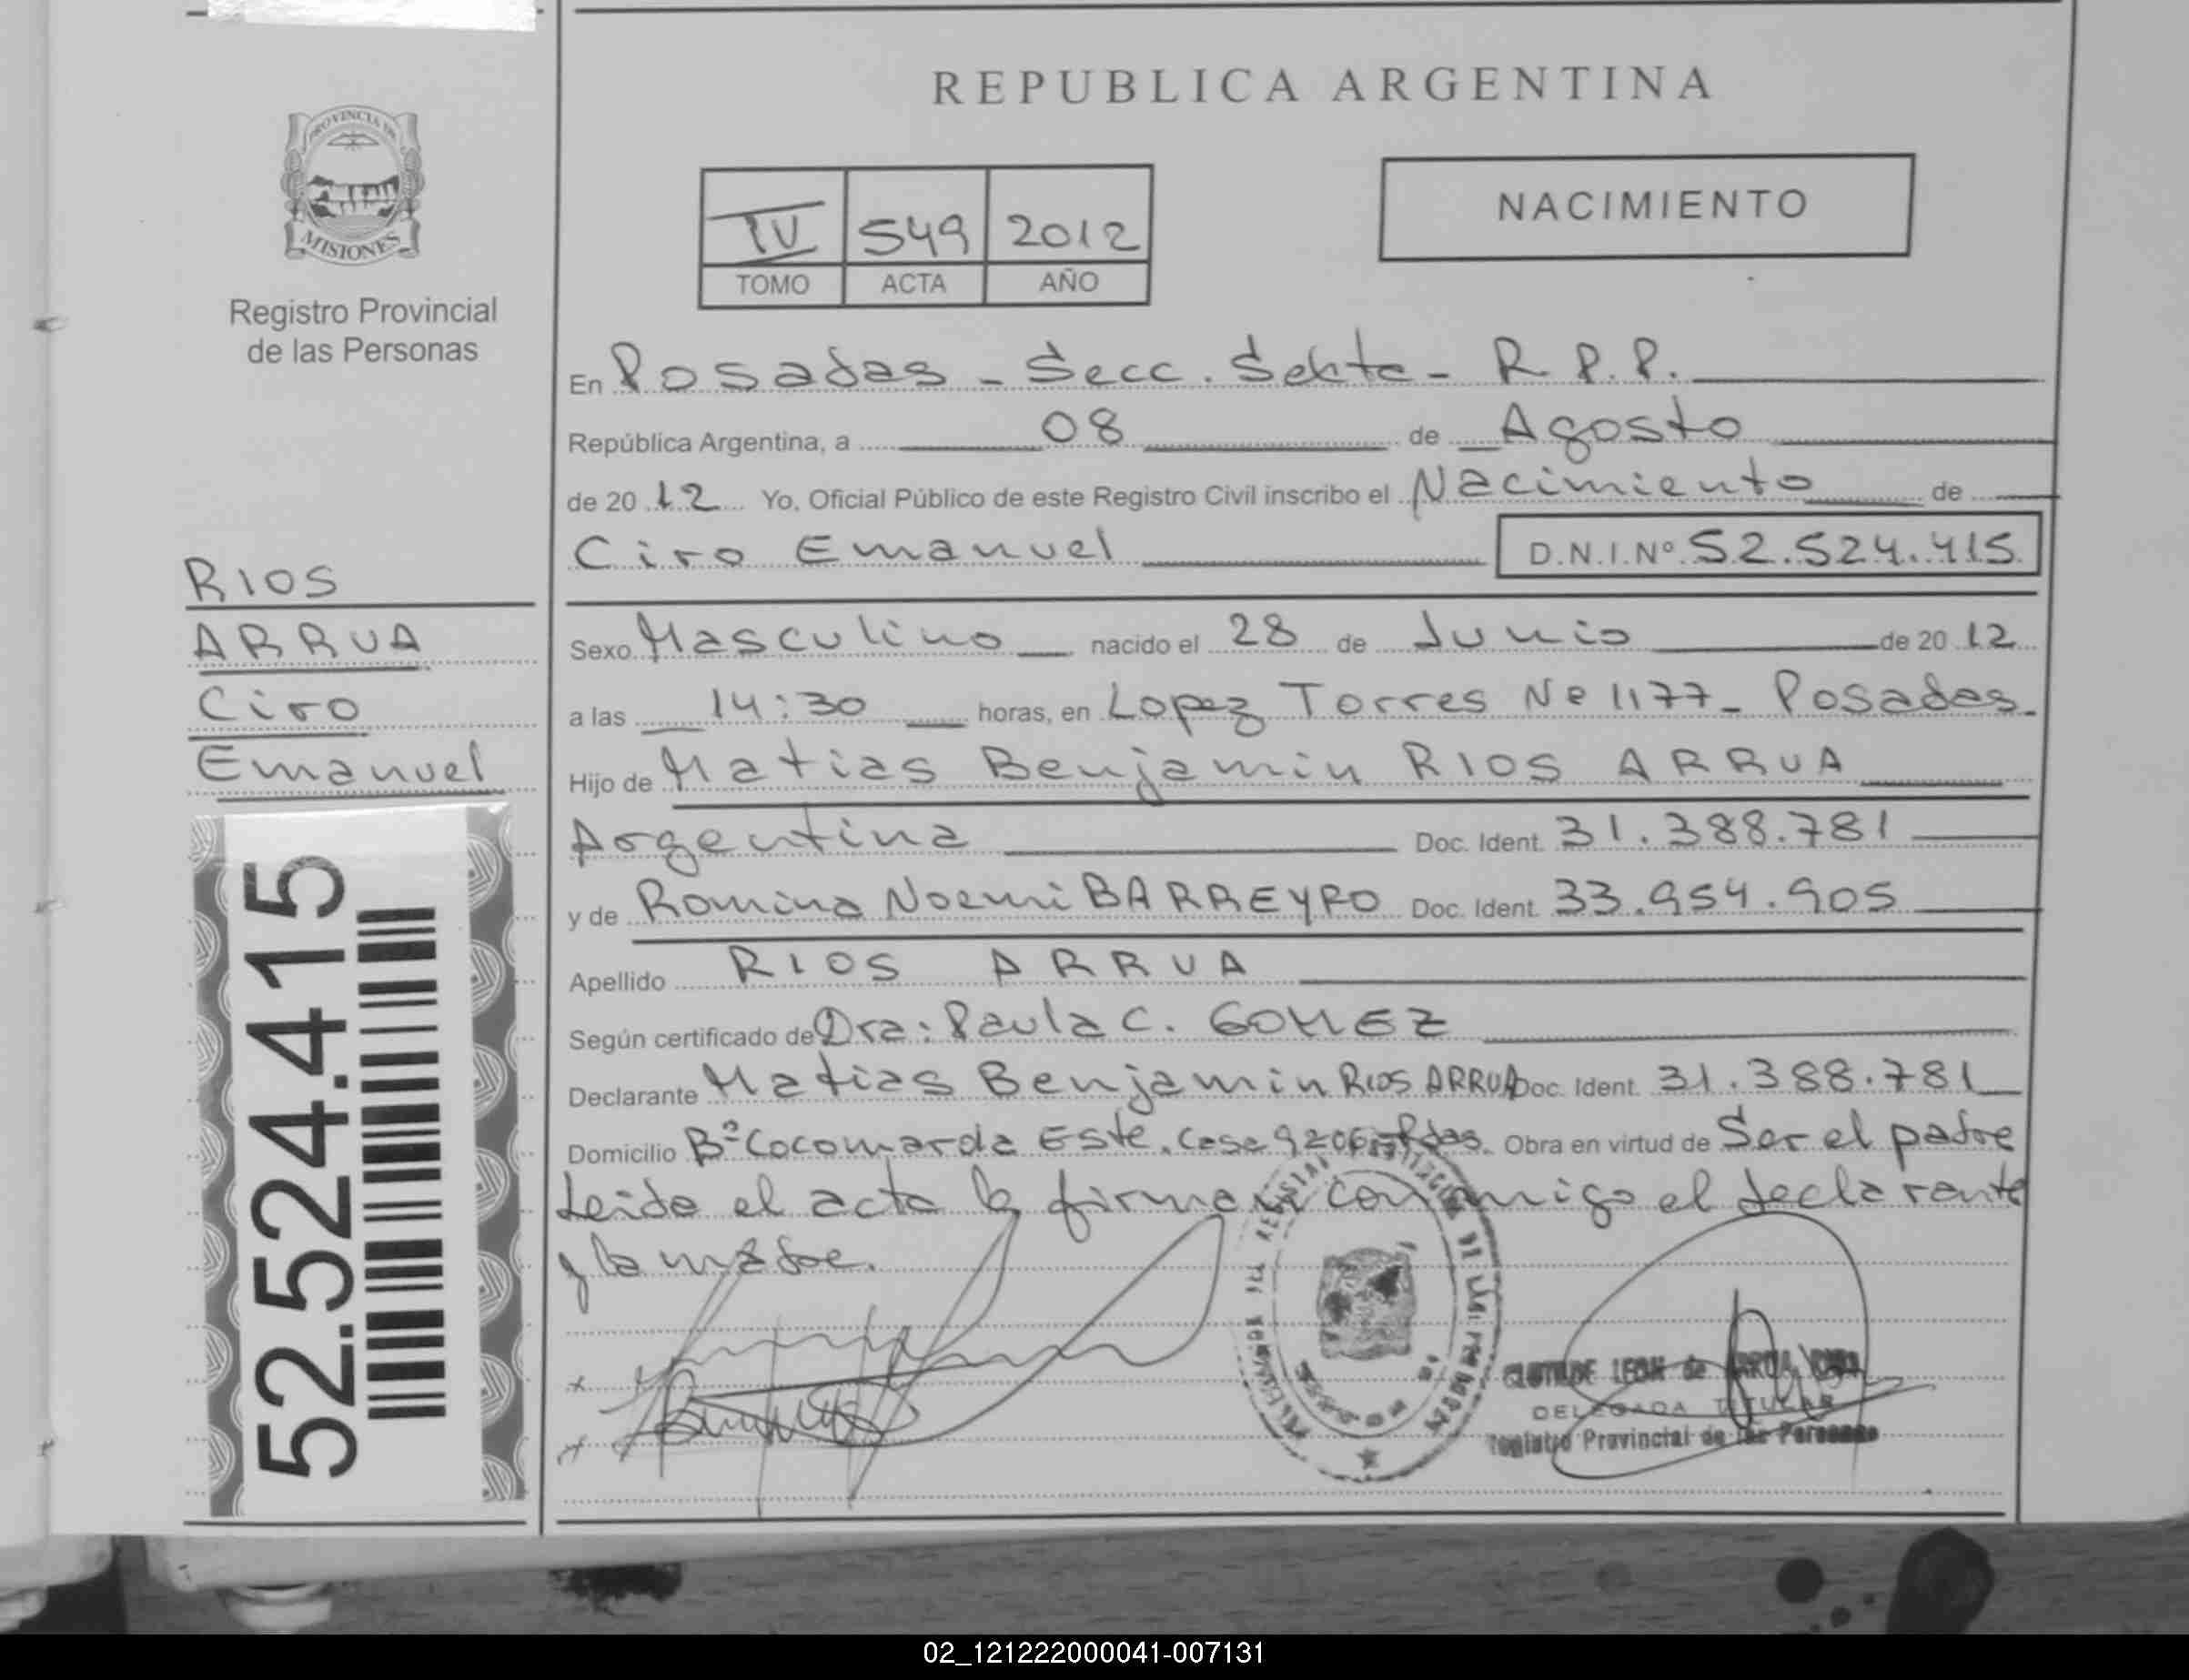 PROVINCIA DE
MISIONES
Registro Provincial
de las Personas
RIOS
ARRUA
Ciro
Emanuel
52.524.415
REPUBLICA ARGENTINA
IV 549 2012
TOMO ACTA AÑO
NACIMIENTO
En Posadas - Secc. Sexta - R.P.P.
República Argentina, a 08 de Agosto
de 2012 Yo, Oficial Público de este Registro Civil inscribo el Nacimiento de
Ciro Emanuel D.N.I.Nº 52.524.415
Sexo Masculino nacido el 28 de Junio de 2012
a las 14:30 horas, en Lopez Torres Nº 1177 - Posadas.
Hijo de Matias Benjamin RIOS ARRUA
Argentina Doc. Ident. 31.388.781
y de Romina Noemi BARREYRO Doc. Ident. 33.954.905
Apellido RIOS ARRUA
Según certificado de Dra: Paula C. GOMEZ
Declarante Matias Benjamin RIOS ARRUA Doc. Ident. 31.388.781
Domicilio Bº Cocomarola Este. Casa Obra en virtud de Ser el padre
Leida el acta la firman conmigo el declarante
y la madre.
LEON de ARRUA
DELEGADA TITULAR
Registro Provincial de las Personas
02_121222000041-007131